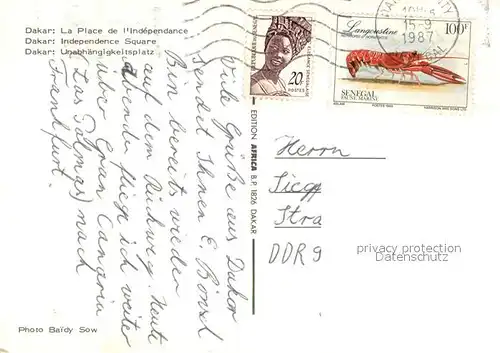 Dakar: La Place de l'Indépendance
Dakar: Independence Square
Dakar: Unabhängigkeitsplatz
Viele Grüße aus Dakar
sendet Ihnen E. Bönsel
Bin bereits wieder
auf dem Rückweg. Heute
Abend fliege ich weiter
über Gran Canaria
(Las Palmas) nach
Frankfurt.
Photo Baïdy Sow
EDITION AFRICA B.P. 1826 DAKAR
20F
POSTES
15-9
1987
Langoustine
100F
SENEGAL
FAUNE MARINE
Herrn
Sieg
Stra
DDR 9
privacy protection
Datenschutz